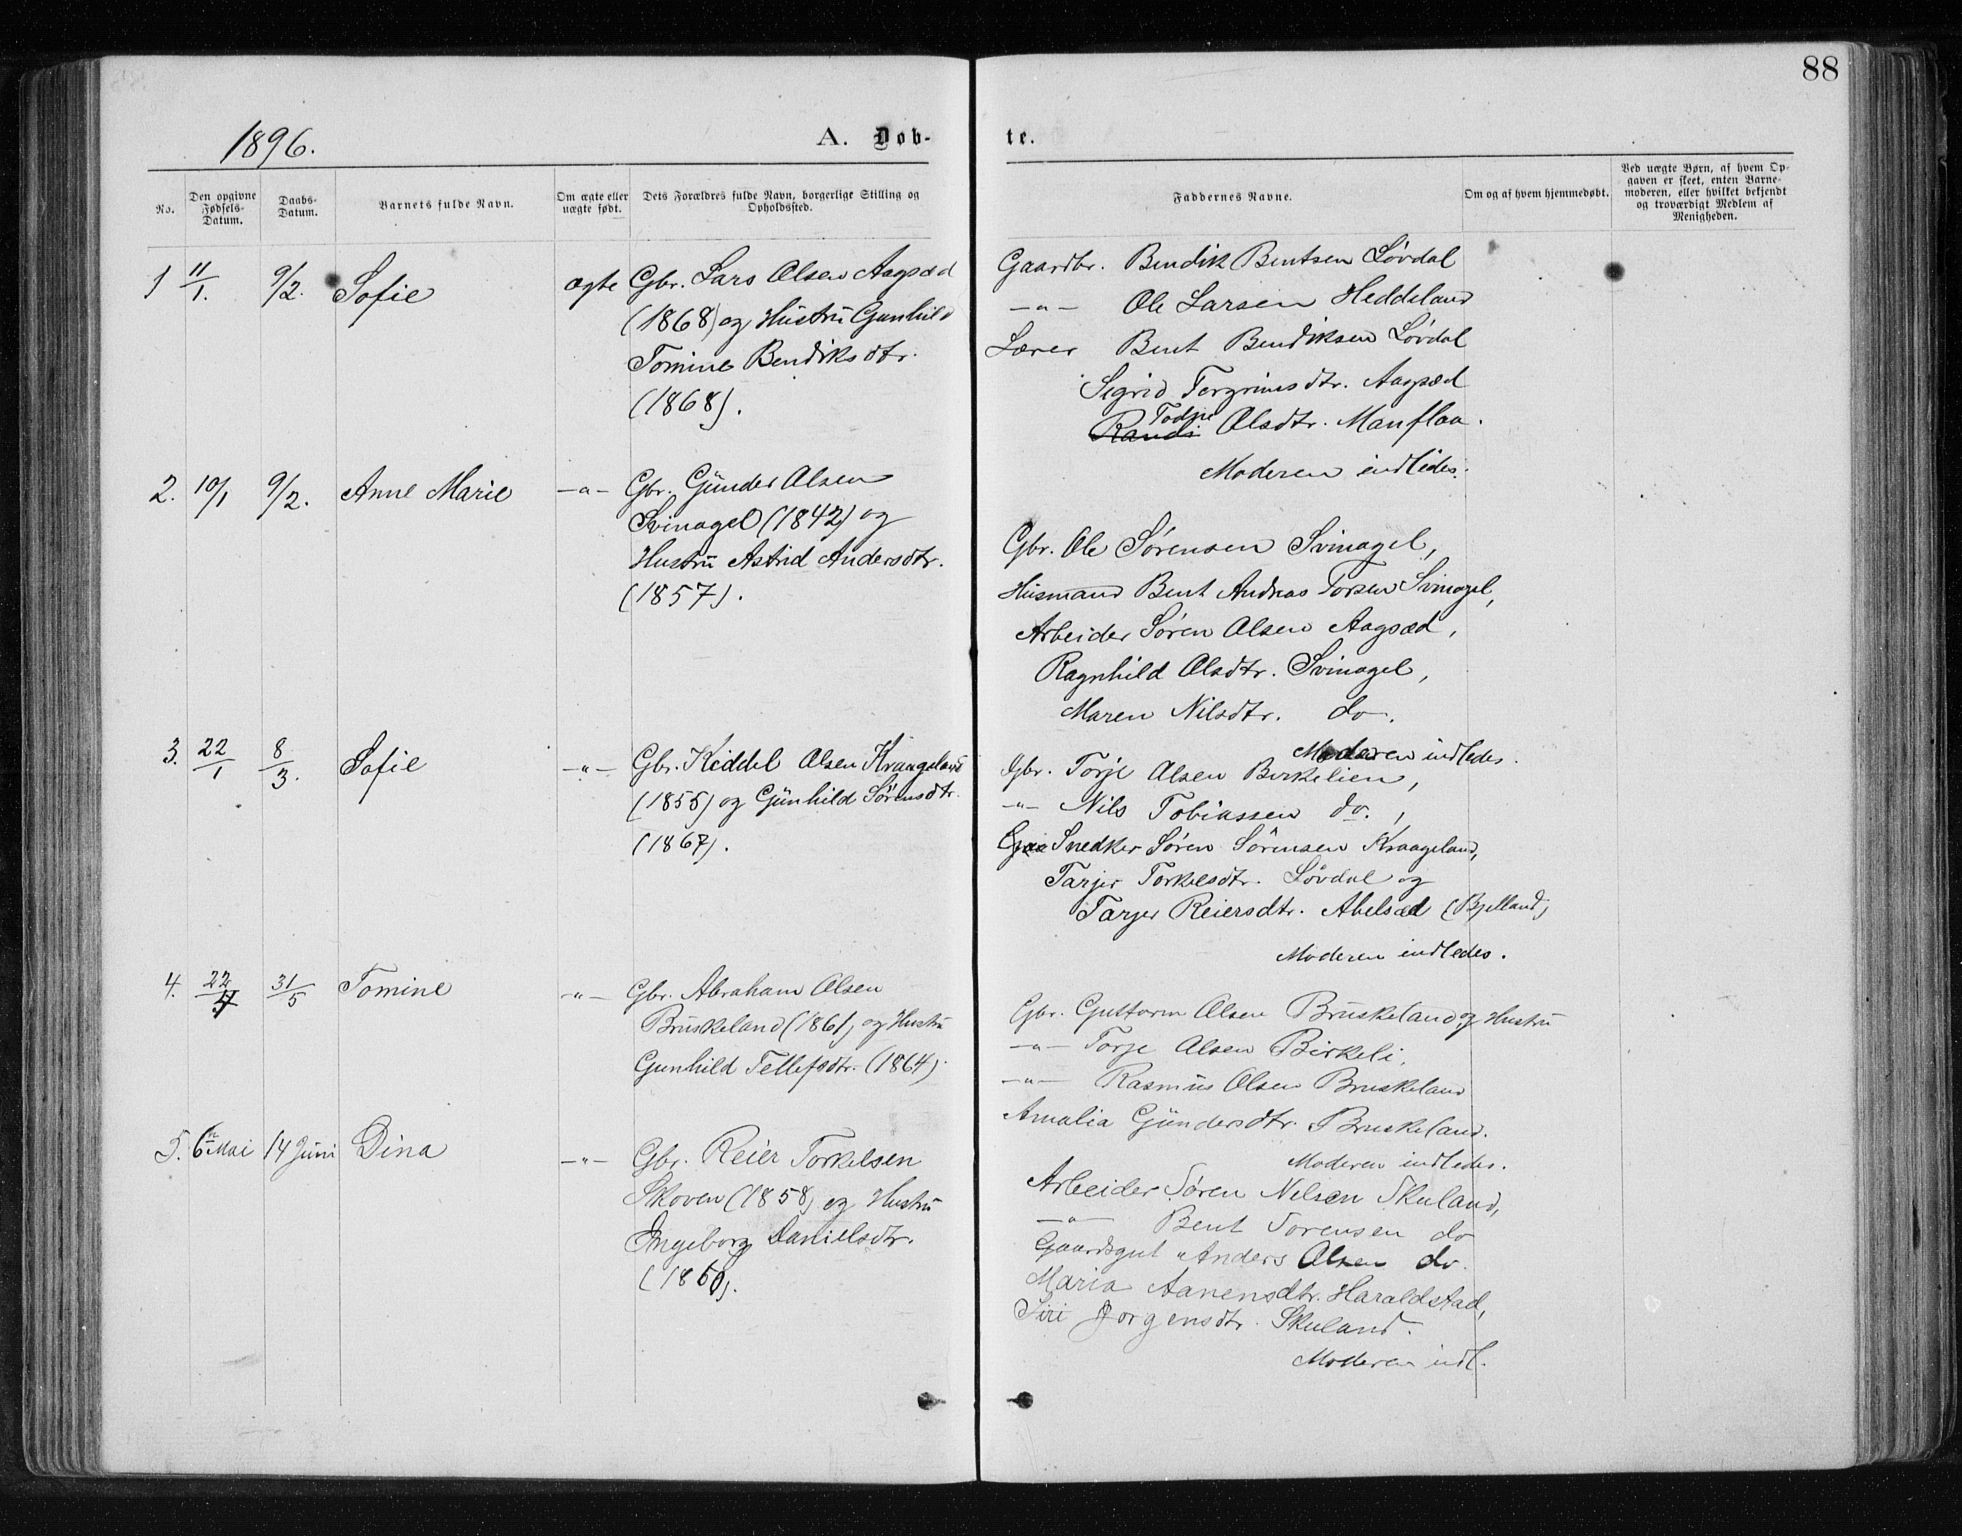 88
1896.
A. Døb-
te.
No.
Den opgivne Fødsels-Datum.
Daabs-Datum.
Barnets fulde Navn.
Om ægte eller uægte født.
Dets Forældres fulde Navn, borgerlige Stilling og Opholdssted.
Faddernes Navne.
Om og af hvem hjemmedøbt.
Ved uægte Børn, af hvem Opgaven er skeet, enten Barnemoderen, eller hvilket bekjendt og troværdigt Medlem af Menigheden.
1 11/1. 9/2. Sofie ægte Gbr. Lars Olsen Aagsæd
(1868) og Hustru Gunhild
Tomine Bendiksdtr.
(1868).
Gaardbr. Bendik Bentsen Løvdal
—"— Ole Larsen Heddeland
Lærer Bent Bendiksen Løvdal
Sigrid Torgrimsdtr. Aagsæd
Randi Todne Olsdtr. Manflaa.
Moderen indledes.
2. 10/1 9/2. Anne Marie —"— Gbr. Gunder Olsen
Svinagel (1842) og
Hustru Astrid Andersdtr.
(1857).
Gbr. Ole Sørensen Svinagel,
Husmand Bent Andreas Torsen Svinagel,
Arbeider Søren Olsen Aagsæd,
Ragnhild Olsdtr. Svinagel,
Maren Nilsdtr. do.
Moderen indledes.
3. 22/1 8/3. Sofie —"— Gbr. Keddel Olsen Kraageland
(1855) og Gunhild Sørensdtr.
(1867).
Gbr. Torje Olsen Birkelien,
—"— Nils Tobiassen do.,
Snedker Søren Sørensen Kraageland,
Tarjer Torkelsdtr. Løvdal og
Tarjer Reiersdtr. Abelsæd (Bjelland)
Moderen indledes.
4. 22/4 31/5 Tomine —"— Gbr. Abraham Olsen
Bruskeland (1861) og Hustru
Gunhild Tellefsdtr. (1864).
Gbr. Guttorm Olsen Bruskeland og Hustru
—"— Torje Olsen Birkeli,
—"— Rasmus Olsen Bruskeland
Amalia Gundersdtr. Bruskeland.
Moderen indledes.
5. 6te Mai 14 Juni Dina —"— Gbr. Reier Torkelsen
Skoven (1858) og Hustru
Ingeborg Danielsdtr.
(1860).
Arbeider Søren Nilsen Skuland,
—"— Bent Sorensen do
Gaardsgut Anders Olsen do.
Maria Aanensdtr. Haraldstad,
Siri Jorgensdtr. Skuland.
Moderen indl.